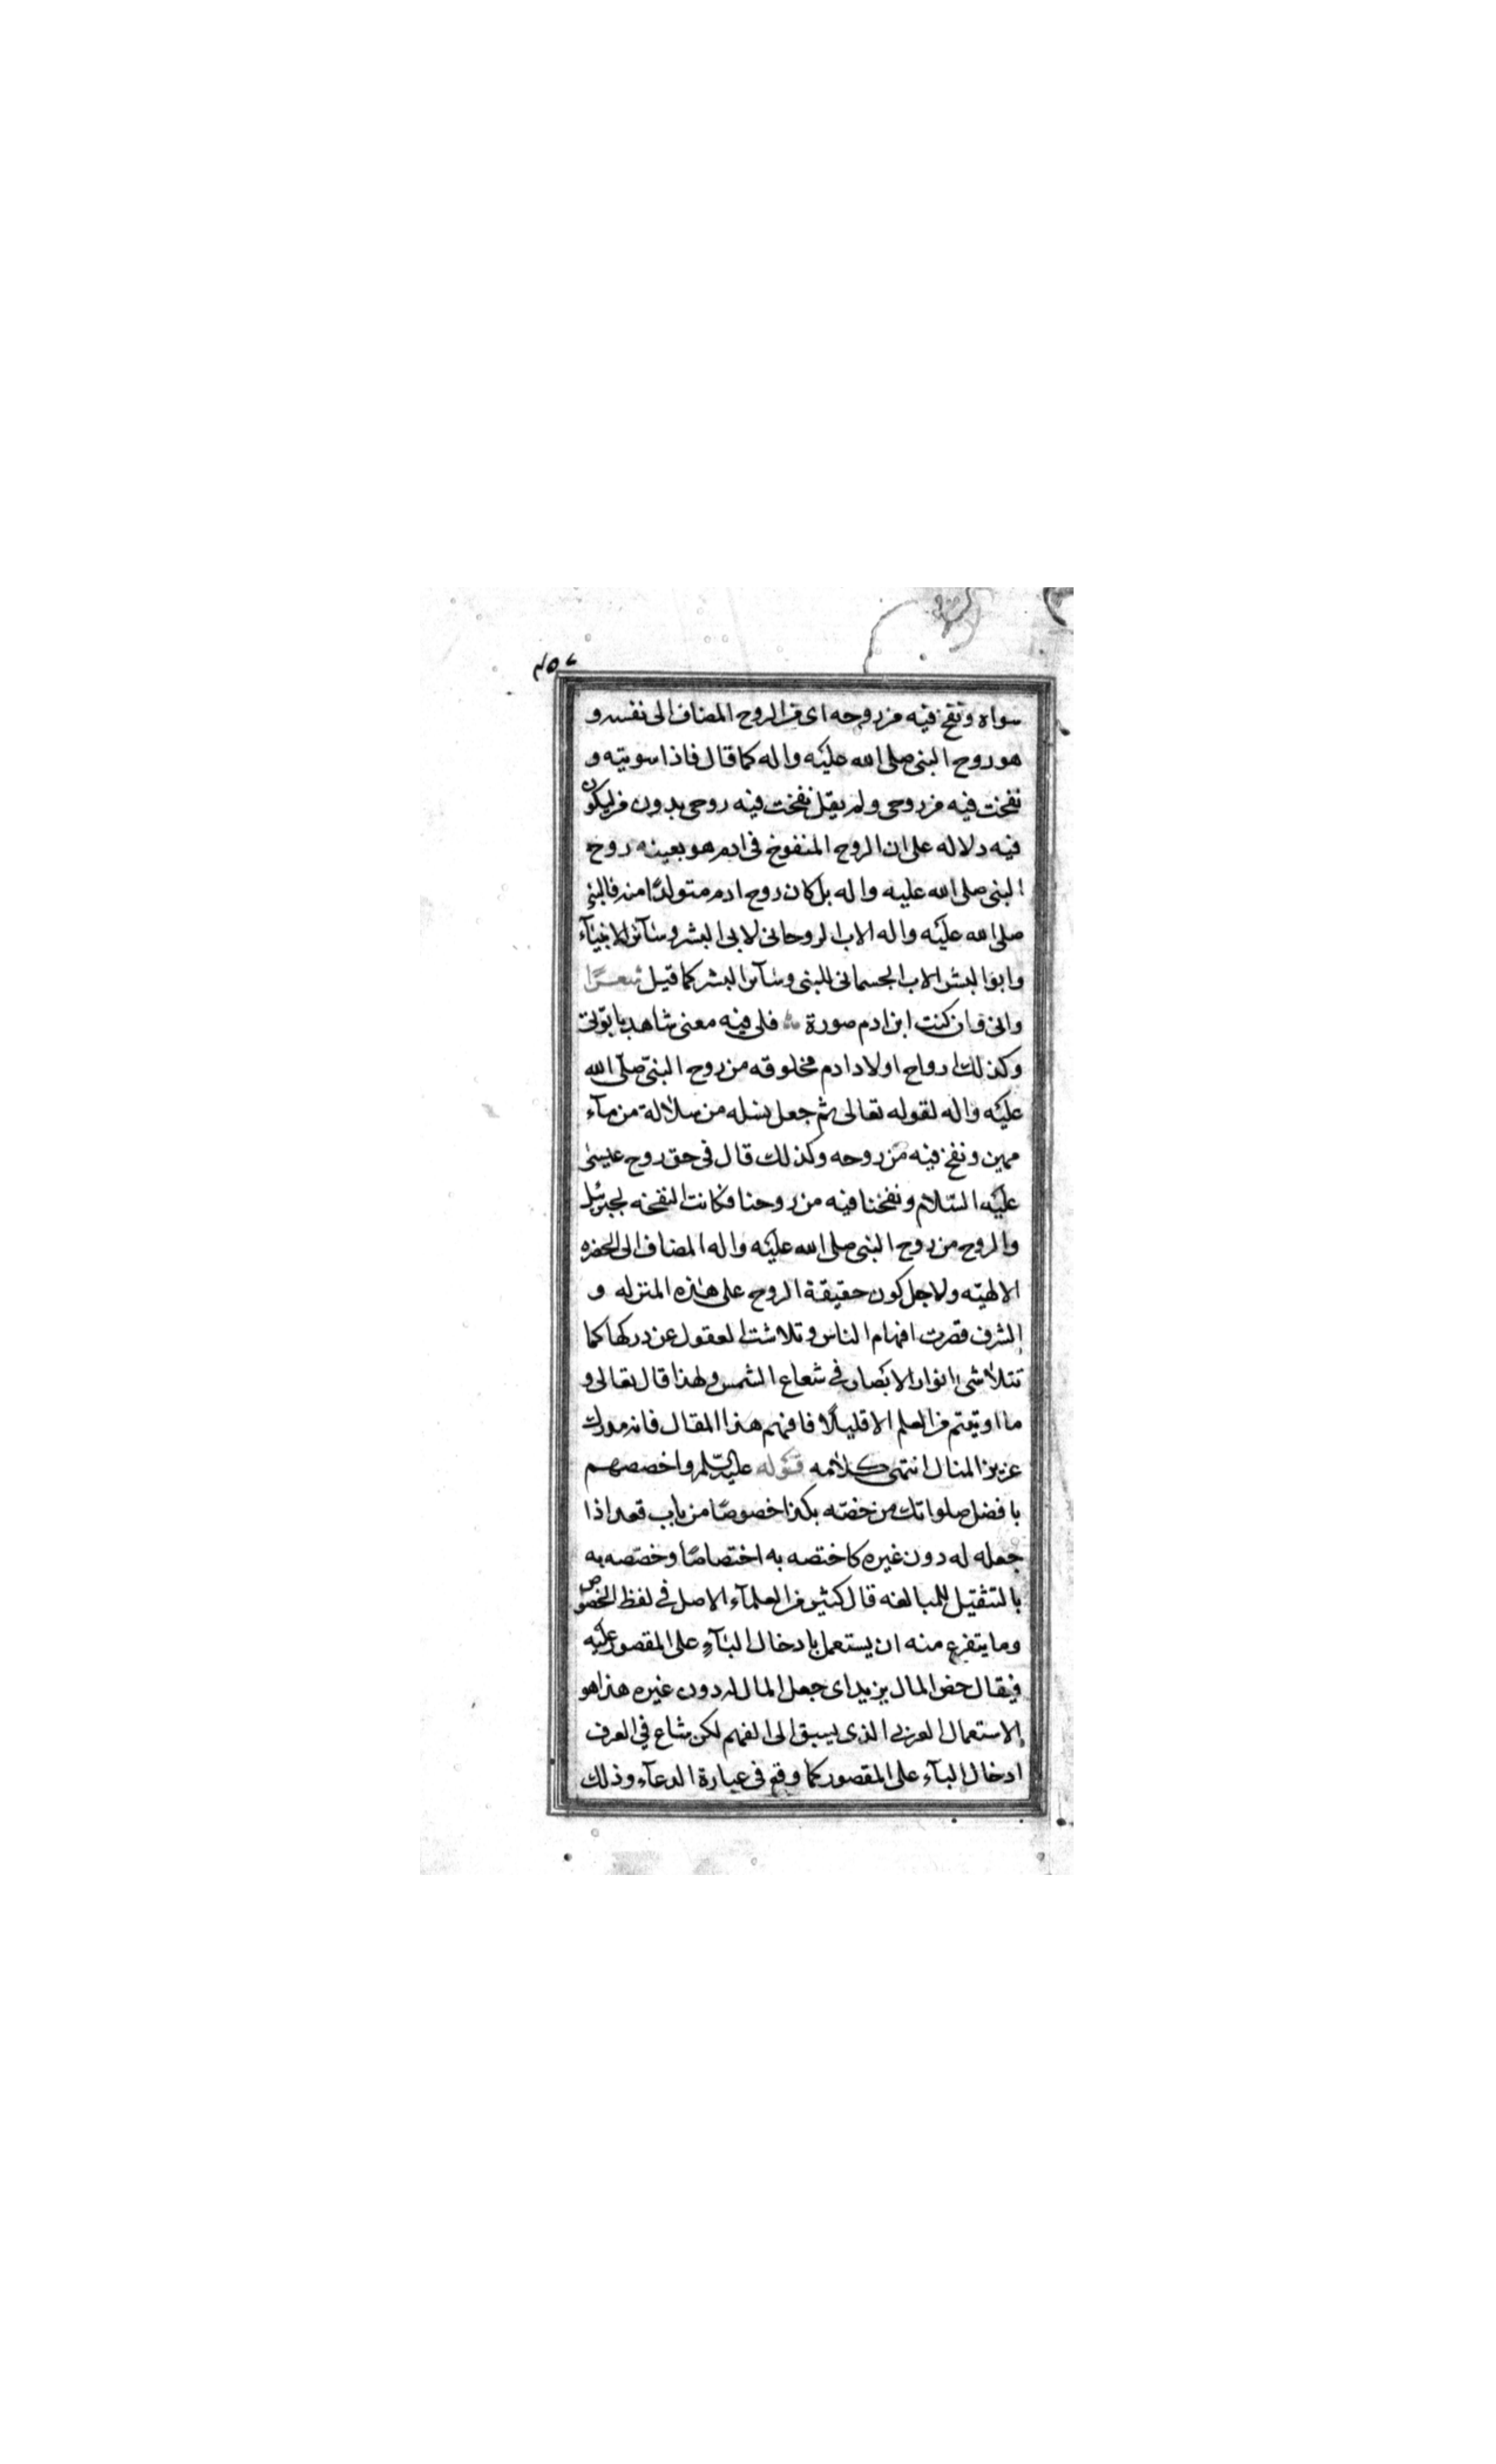 سواه ونفخ فيه من روحه اى من الروح المضاف الى نفسه و
هو روح النبى صلى الله عليه واله كما قال فاذا سويته و
نفخت فيه من روحى ولم يقل نفخت فيه روحى بدون من ليكون
فيه دلاله على ان الروح المنفوخ فى ادم هو بعينه روح
النبى صلى الله عليه واله بل كان روح ادم متولدًا منه فالنبى
صلى الله عليه واله الاب الروحانى لابى البشر وسآئر الانبيآء
وابوا البشر الاب الجسمانى للنبى وسآئر البشر كما قيل شعرًا
وانى وان كنت ابن ادم صورة فلى فيه معنى شاهد بابوّتى
وكذلك ارواح اولاد ادم مخلوقه من روح النبىّ صلّى الله
عليه واله لقوله تعالى ثم جعل نسله من سلالة من مآء
مهين ونفخ فيه من روحه وكذلك قال فى حق روح عيسى
عليه السّلام ونفخنا فيه من روحنا فكانت النفخه لجبرئيل
والروح من روح النبى صلى الله عليه واله المضاف الى الحضره
الالهيّه ولاجل كون حقيقة الروح على هذه المنزله و
الشرف قصرت افهام الناس وتلاشت العقول عن دركها كما
تتلاشى انوار الابصار فى شعاع الشمس ولهذا قال تعالى و
ما اوتيتم من العلم الا قليلًا فافهم هذا المقال فانه مدرك
عزيز المنال انتهى كلامه قوله عليه السّلم واخصصهم
بافضل صلواتك من خصّه بكذا خصوصًا من باب قعد اذا
جعله له دون غيره كاختصه به اختصاصًا وخصّصه به
بالتثقيل للمبالغه قال كثير من العلمآء الاصل فى لفظ الخصوص
وما يتفرع منه ان يستعمل بادخال البآء على المقصور عليه
فيقال خص المال بزيد اى جعل المال له دون غيره هذا هو
الاستعمال العربى الذى يسبق الى الفهم لكن شاع فى العرف
ادخال البآء على المقصور كما وقع فى عبارة الدعآء وذلك